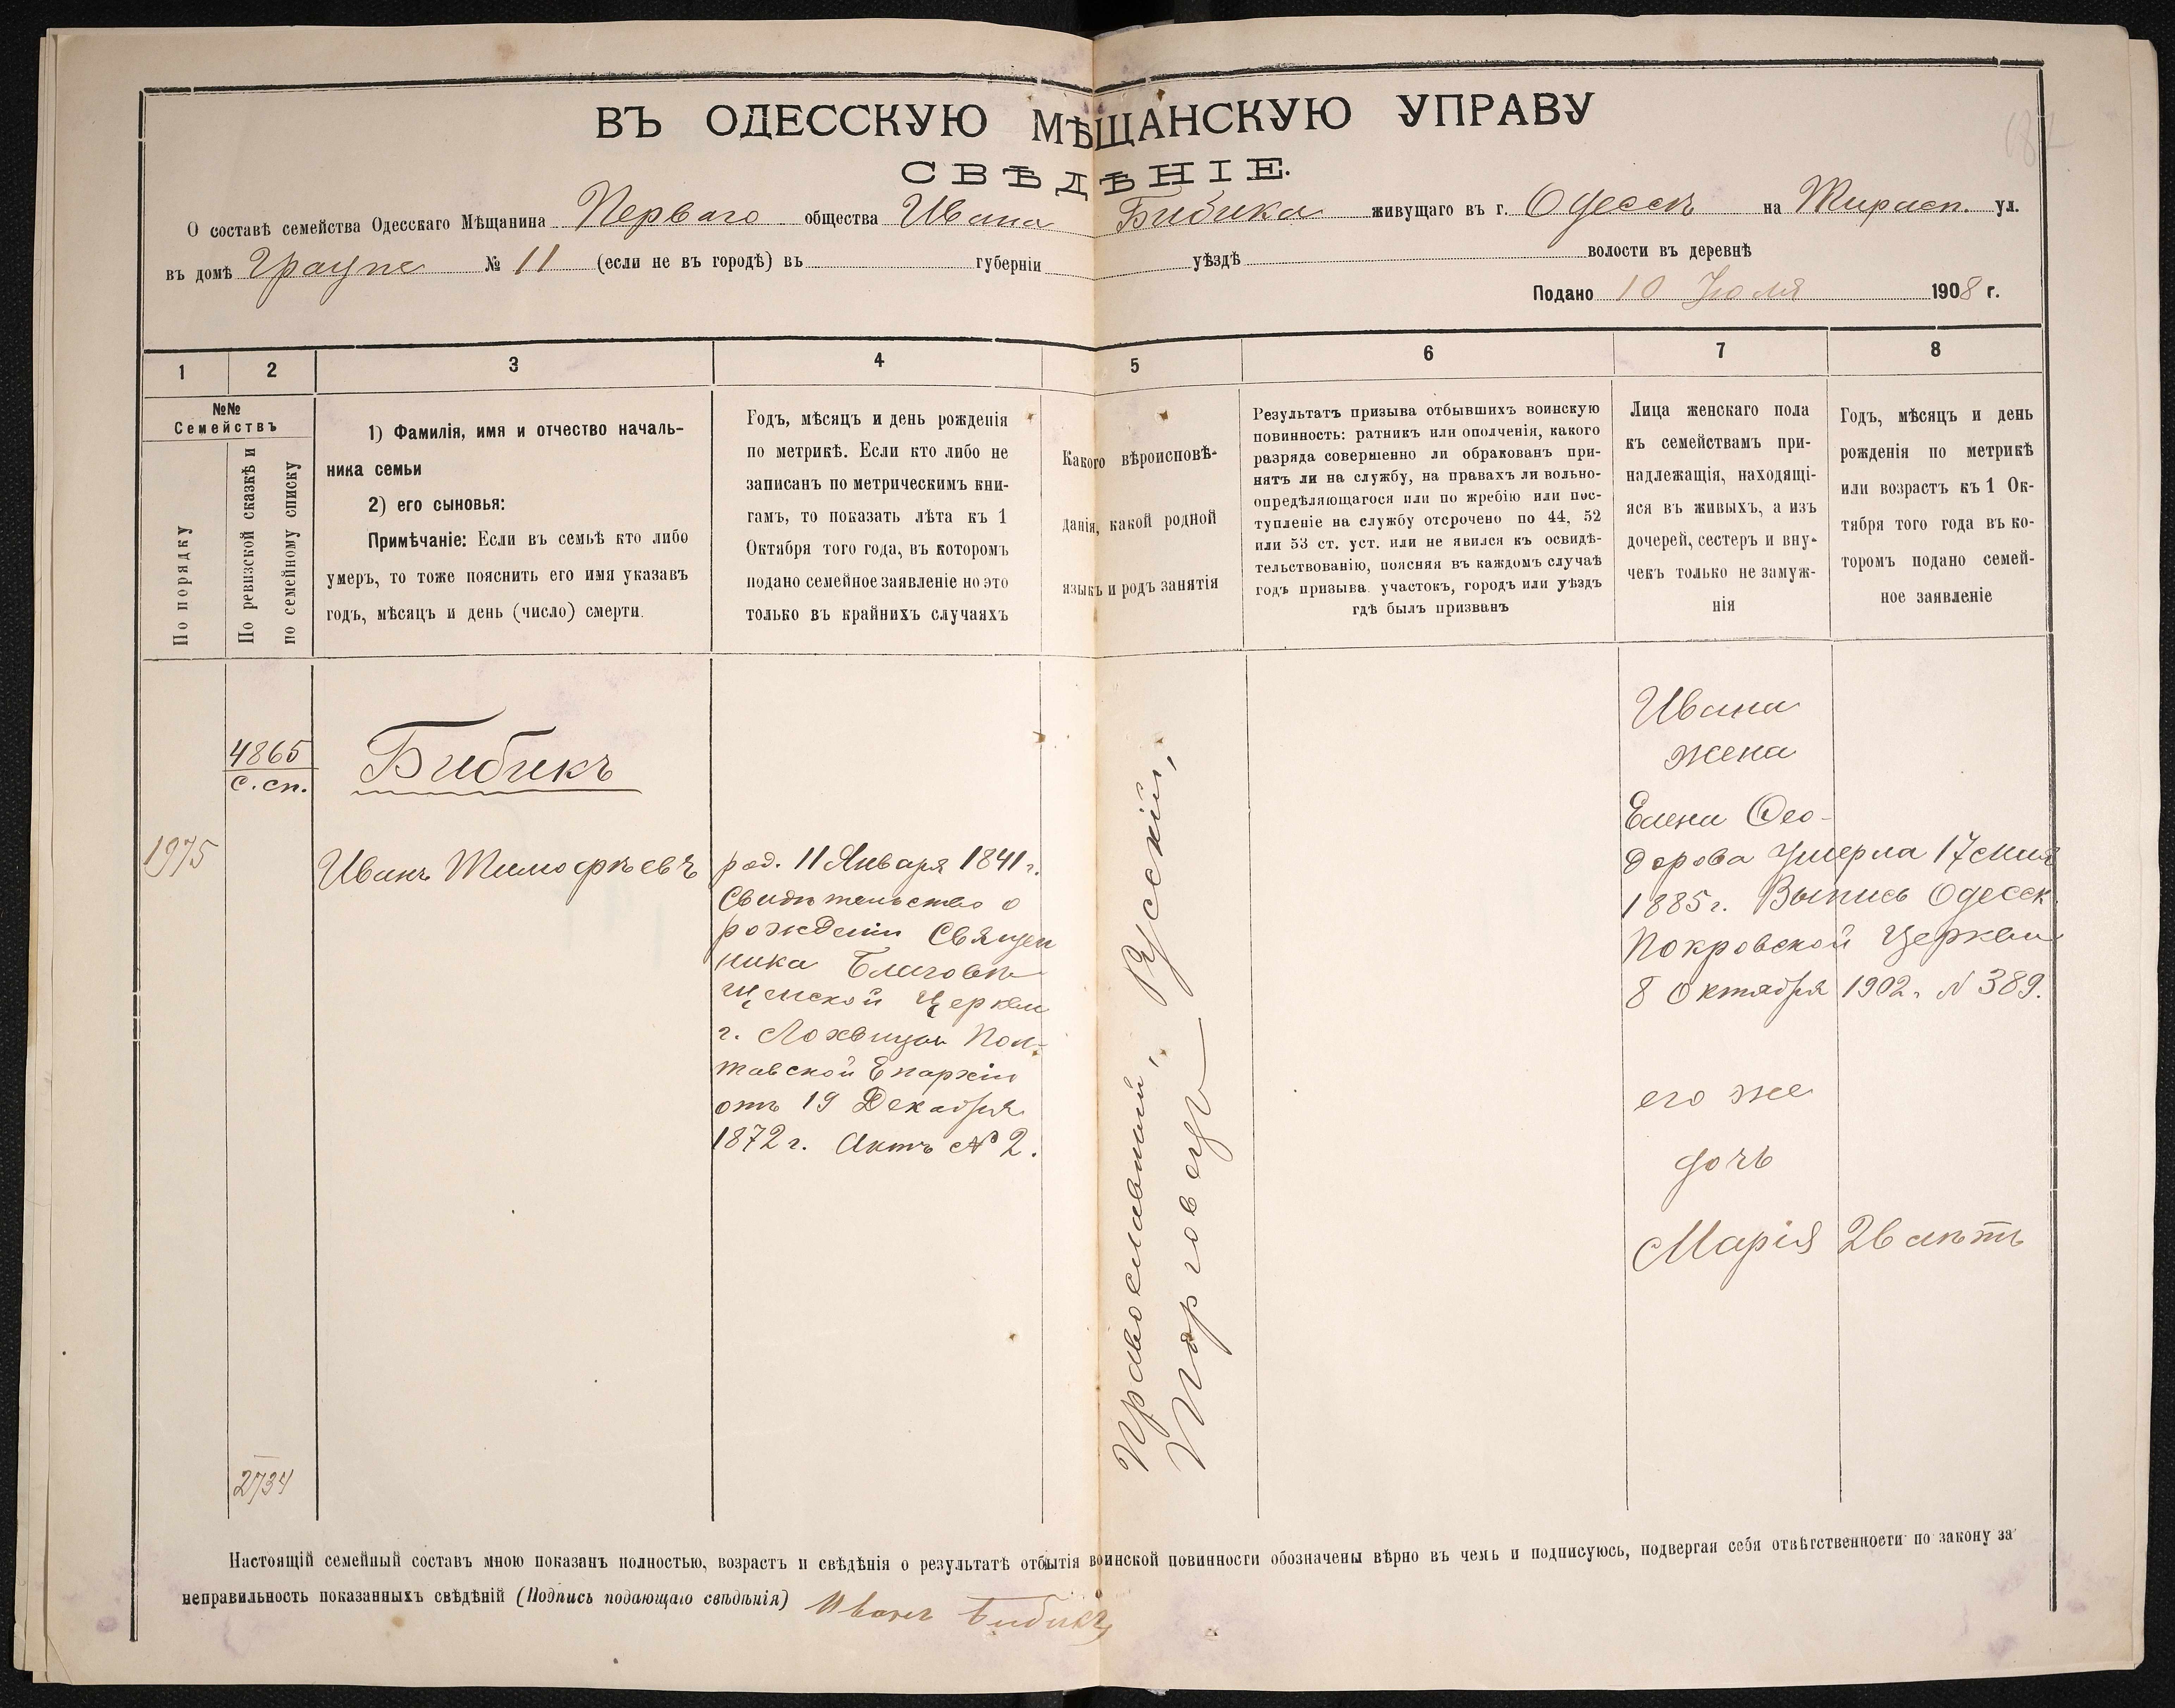 ВЪ ОДЕССКУЮ МѢЩАНСКУЮ УПРАВУ
СВѢДѢНІЕ.
О составѣ семейства Одесскаго Мѣщанина Перваго общества Ивана Бибика живущаго въ г. Одессѣ на Тирасп. ул.
въ домѣ № 11 (если не въ городѣ) въ губерніи уѣздѣ волости въ деревнѣ
Подано 10 Іюля 1908 г.
1 2 3 4 5 6 7 8
№№
Семействъ
По порядку
По ревизской сказкѣ и
по семейному списку
1) Фамилія, имя и отчество началь-
ника семьи
2) его сыновья:
Примѣчаніе: Если въ семьѣ кто либо
умеръ, то тоже пояснить его имя указавъ
годъ, мѣсяцъ и день (число) смерти.
Годъ, мѣсяцъ и день рожденія
по метрикѣ. Если кто либо не
записанъ по метрическимъ кни-
гамъ, то показать лѣта къ 1
Октября того года, въ которомъ
подано семейное заявленіе но это
только въ крайнихъ случаяхъ
Какого вѣроисповѣ-
данія, какой родной
языкъ и родъ занятія
Результатъ призыва отбывшихъ воинскую
повинность: ратникъ или ополченія, какого
разряда совершенно ли обракованъ при-
нятъ ли на службу, на правахъ ли вольно-
опредѣляющагося или по жребію или пос-
тупленіе на службу отсрочено по 44, 52
или 53 ст. уст. или не явился къ освидѣ-
тельствованію, поясняя въ каждомъ случаѣ
годъ призыва участокъ, городъ или уѣздъ
гдѣ былъ призванъ
Лица женскаго пола
къ семействамъ при-
надлежащія, находящі-
яся въ живыхъ, а изъ
дочерей, сестеръ и вну-
чекъ только не замуж-
нія
Годъ, мѣсяцъ и день
рожденія по метрикѣ
или возрастъ къ 1 Ок-
тября того года въ ко-
торомъ подано семей-
ное заявленіе
4865
с. сп.
Бибикъ
1975
Иванъ Тимофѣевъ
род. 11 Января 1841 г.
Свидѣтельство о
рожденіи Священ
ника Благовѣ
щенской Церкви
г. Лохвицы Пол-
тавской Епархіи
отъ 19 Декабря
1872 г. Актъ № 2.
Православный, Русскій,
Торговецъ
Ивана
жена
Елена Ѳео-
дорова Умерла 17 мая
1885 г. Выпись Одесск
Покровской Церкви
8 Октября 1902 г. № 389.
его же
дочь
Марія 26 лѣтъ
2734
Настоящій семейный составъ мною показанъ полностью, возрастъ и свѣдѣнія о результатѣ отбытія воинской повинности обозначены вѣрно въ чемъ и подписуюсь, подвергая себя отвѣтственности по закону за
неправильность показанныхъ свѣдѣній (Подпись подающаго свѣдѣнія) Иванъ Бибикъ